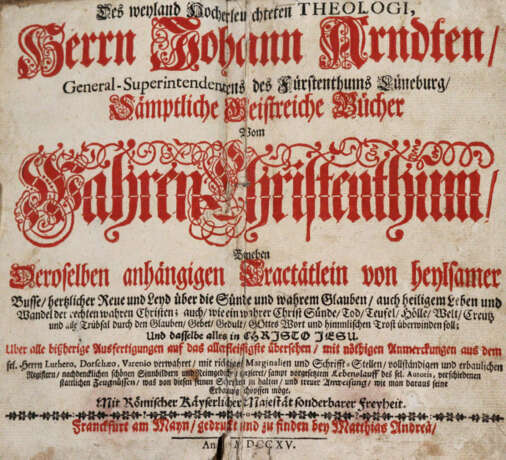 Des weyland Hocherleuchteten THEOLOGI,
Herrn Johann Arndten/
General-Superintendentens des Fürstenthums Lüneburg/
Sämptliche Geistreiche Bücher
Vom
Wahren Christenthum/
Deroselben anhängigen Tractätlein von heylsamer
Busse/ hertzlicher Reue und Leyd über die Sünde und wahrem Glauben/ auch heiligem Leben und
Wandel der rechten wahren Christen; auch/ wie ein wahrer Christ Sünde/ Tod/ Teufel/ Hölle/ Welt/ Creutz
und alle Trübsal durch den Glauben/ Gebet/ Gedult/ GOttes Wort und himmlischen Trost überwinden soll;
Und dasselbe alles in CHRISTO JESU.
Uber alle bißherige Ausfertigungen auf das allerfleissigste übersehen/ mit nöthigen Anmerckungen aus dem
sel. Herrn Luthero, Dorschæo, Varenio verwahret/ mit richtigen Marginalien und Schrifft-Stellen/ vollständigen und erbaulichen
Registern/ nachdencklichen schönen Sinnbildern und Reimgedichten gezieret; sampt vorgesetztem Lebenslauff des sel. Autoris, verschiedenen
stattlichen Zeugnüssen/ was von diesen seinen Schrifften zu halten/ und treuer Anweisung/ wie man daraus seine
Erbauung schöpffen möge.
Mit Römischer Käyserlicher Majestät sonderbarer Freyheit.
Franckfurt am Mayn/ gedruckt und zu finden bey Matthias Andreä/
DCCXV.